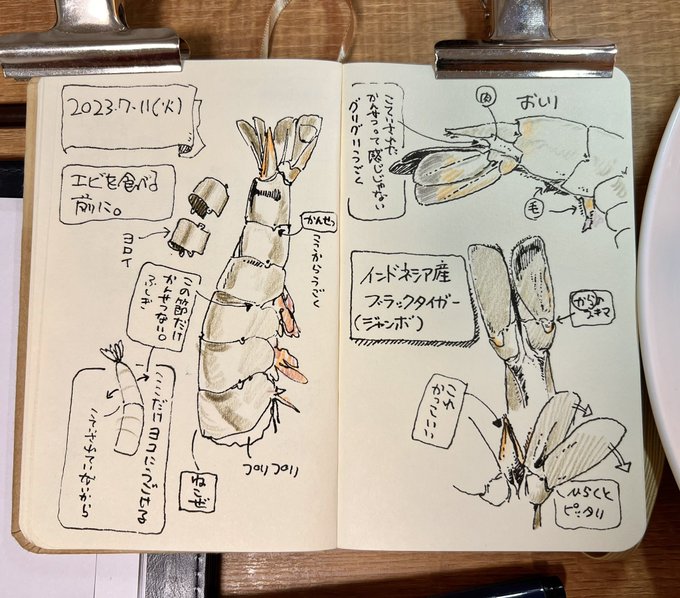 2023.7.11(火)
エビを食べる
前に。
ヨロイ
かんせつ
ここからうごく
この節だけ
かんせつない。
ふしぎ
ここだけヨコにうごせる
こていされていないから
ねこぜ
コリコリ コリコリ
おしり
肉
こていされた
かんせつって感じじゃない
グリグリうごく
毛
インドネシア産
ブラックタイガー
(ジャンボ)
からの
スキマ
こっち
かっこいい
ひらくと
ピッタリ